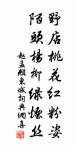 野店桃花紅粉姿
陌頭楊柳綠煙絲
趙孟頫東城詞興網喜